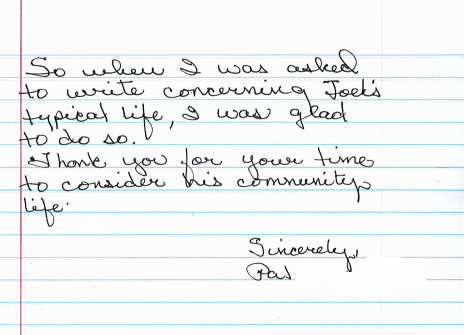 So when I was asked
to write concerning Joel's
typical life, I was glad
to do so.
Thank you for your time
to consider his community
life.
Sincerely,